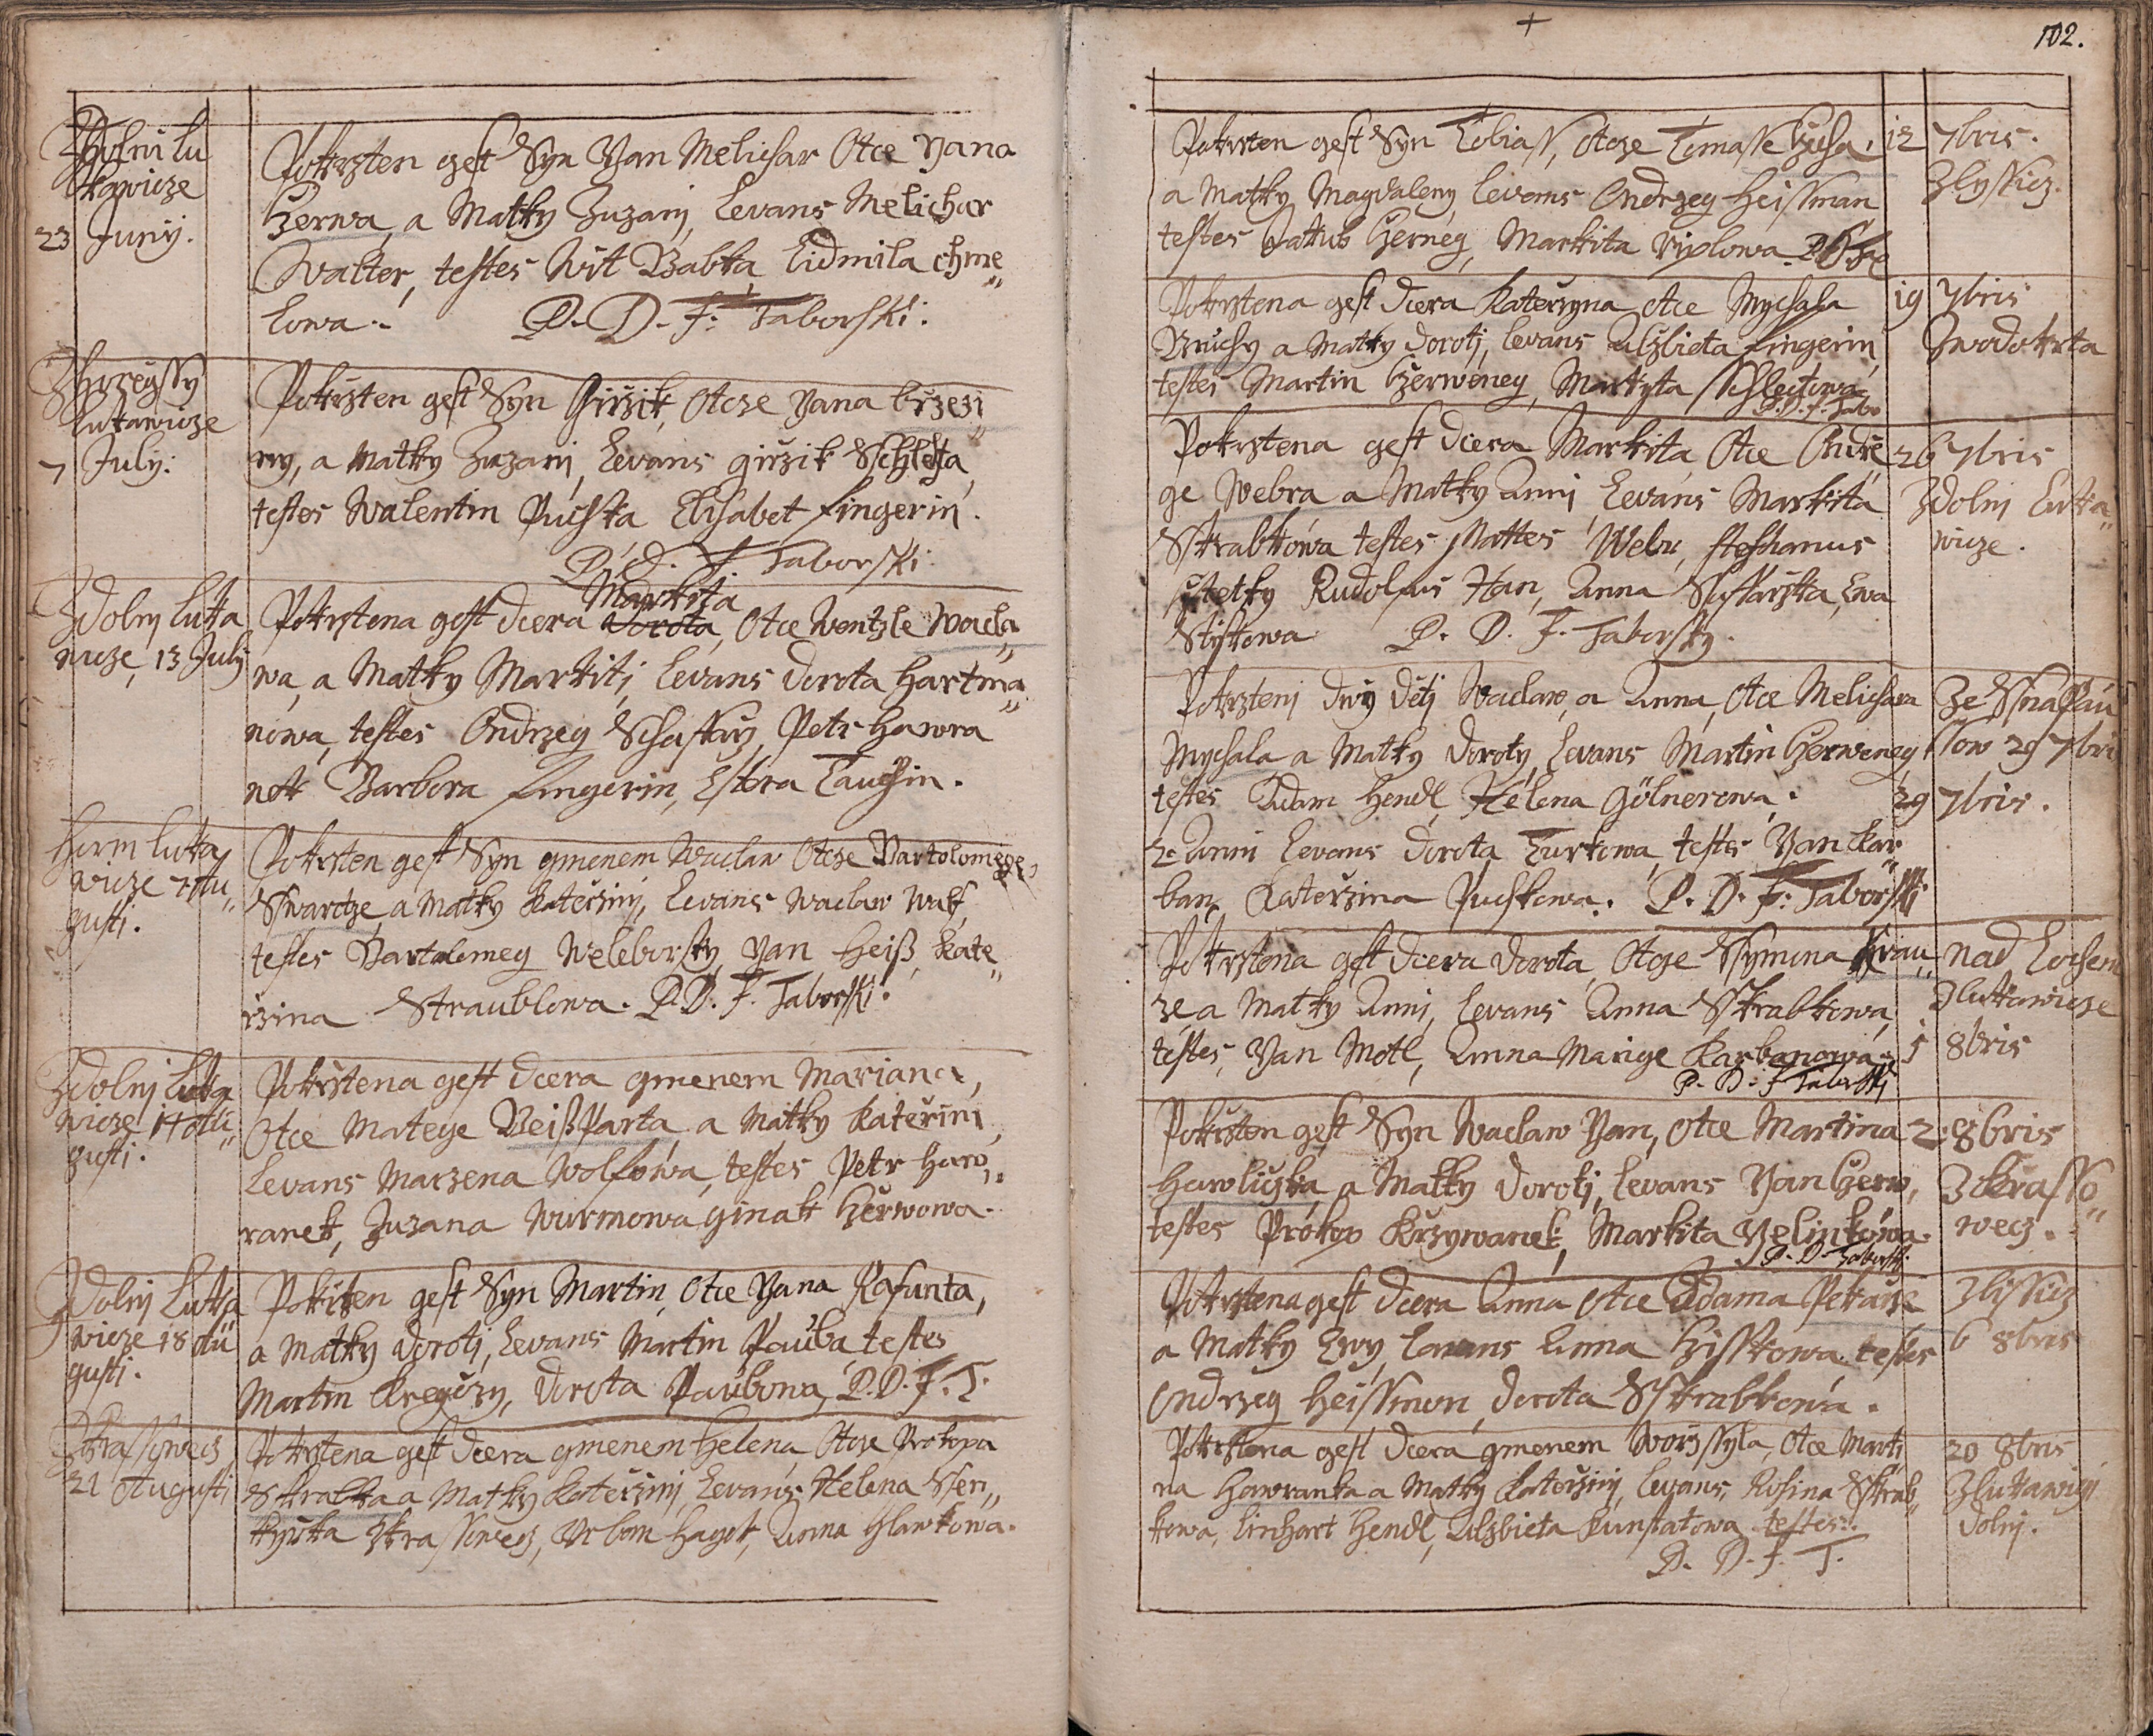 Zdolni Lu
kawicze
23 Junij.
Pokrzten gest Syn Yan Melichar Otce Yana
Czerwa, a Matky Zuzanj, Levans Melichar
Walter, testes Wit Babka, Lidmila Chme„
lowa. P. D. F. Taborski.
Zhorėgssy
Lukawicze
7 July.
Pokrzten gest Syn Girzik, Otcze Yana Brzezi„
ny, a Matky Zuzanj, Levans girzik Schlechta,
testes Walentin Puchta Elisabet Fingerin.
P. D. F. Taborski.
Zdolnj Luka
wicze, 13 July
Markita
Pokrztena gest dcera Dorota, Otce Wentzle Wacla„
wa, a Matky Markitj, Levans Dorota Hartma„
nowa, testes Ondrzey Schaffarz, Petr Hawra
nek Barbora Fingerin, Estera Tauchin.
Horni Luka
wicze 7 Au„
gusti.
Pokrzten gest Syn gmenem Waclaw Otcze Bartolomege
Swartze, a Matky Katerzinj, Levans Waclaw Wulf,
testes Bartolomeg Weleborsky, Yan Heiß, Kate„
rzina Straublowa. P. D. F. Taborski.
Zdolnj Luka
wicze 14 Au„
gusti.
Pokrztena gest dcera gmenem Mariana,
Otce Matege Beißparta a Matky Kateřini,
Levans Marzena Wolfowa, testes Petr Haw„
ranek, Zuzana Wurmowa ginak Czerwowa.
Zdolnj Luka
wicze 18 Au
gusti.
Pokrzten gest Syn Martin, Otce Yana Rafunta,
a Matky Dorotj, Levans Martin Pauba testes
Martin Kregčzy, Dorota Paubowa, P. D. F. T.
Zkrassowecz
21 Augusti
Pokrztena gest dcera gmenem Helena, Otcze Prokopa
Skrabka a Matky Katerzinj, Levans Helena Ssen„
kyrzka Zkrassowecz, Urban Hagek, Anna Hlawkowa.
102.
Pokrzten gest Syn Tobiass, Otcze Tomasse
a Matky Magdaleny Levans Ondrzeg Heissman
testes Jakub Czerneg, Markita
12 7bris.
Zlyssicz.
Pokrztena gest dcera Katerzyna Otce Mychala
Bruchy a Matky Dorotj, Levans Alzbieta Fingerin,
testes Martin Czerweneg, Markyta Sschlechtowa
P. D. F. Tabo
19 7bris
Zwodokrta
Pokrztena gest dcera Markita Otce Ondrze
ge Webra a Matky Annj, Levans Markita
Skrabkowa testes Mattes Webr, Stephanus
Rudolfus Han, Anna Ewa
P. D. F. Taborsky.
26 7bris
Zdolnj Luka„
wicze.
Pokrztenj dwy dětj Waclaw, a Anna, Otce Melichara
Mychala a Matky Doroty, Levans Martin Czerweneg
testes Adam Hendl, Helena Gölnerowa.
2. Anni Levans Dorota Turkowa, testes Yan Kar
ban, Katerzina Puchkowa. P. D. F. Taborski
Ze Sspapau
ssow 29 7bri
29 7bris.
Pokrztena gest dcera Dorota, Otcze Ssymona Krau„
ze a Matky Annj, Levans Anna Skrabkowa,
testes, Yan Motl, Anna Marige Karbanowa
P. D. F. Taborski
nad Lochem
Zlukawicze
1 8bris
Pokrzten gest Syn Waclaw Yan, Otce Martina
Hawliczka a Matky Dorotj, Levans Yan Czerw,
testes Prokop Krzywanek, Markita Yelinkowa.
P. D. Taborski.
2. 8bris
Zkrasso„
wecz.
Pokrztena gest dcera Anna Otce Adama Pekarze
a Matky Ewy Levans Anna Czisskowa testes
Ondrzeg Heissmon, Dorota Skrabkowa.
Zlissicz
6 8bris
Pokrztena gest dcera gmenem Worssyla, Otce Marti
na Hawranka a Matky Katerzinj, Levans, Rosina Skrab„
kowa, Linhart Hendl, Alzbieta Kunstatowa testes.
P. D. F. T.
20 8bris
Zlukawicz
dolnj.